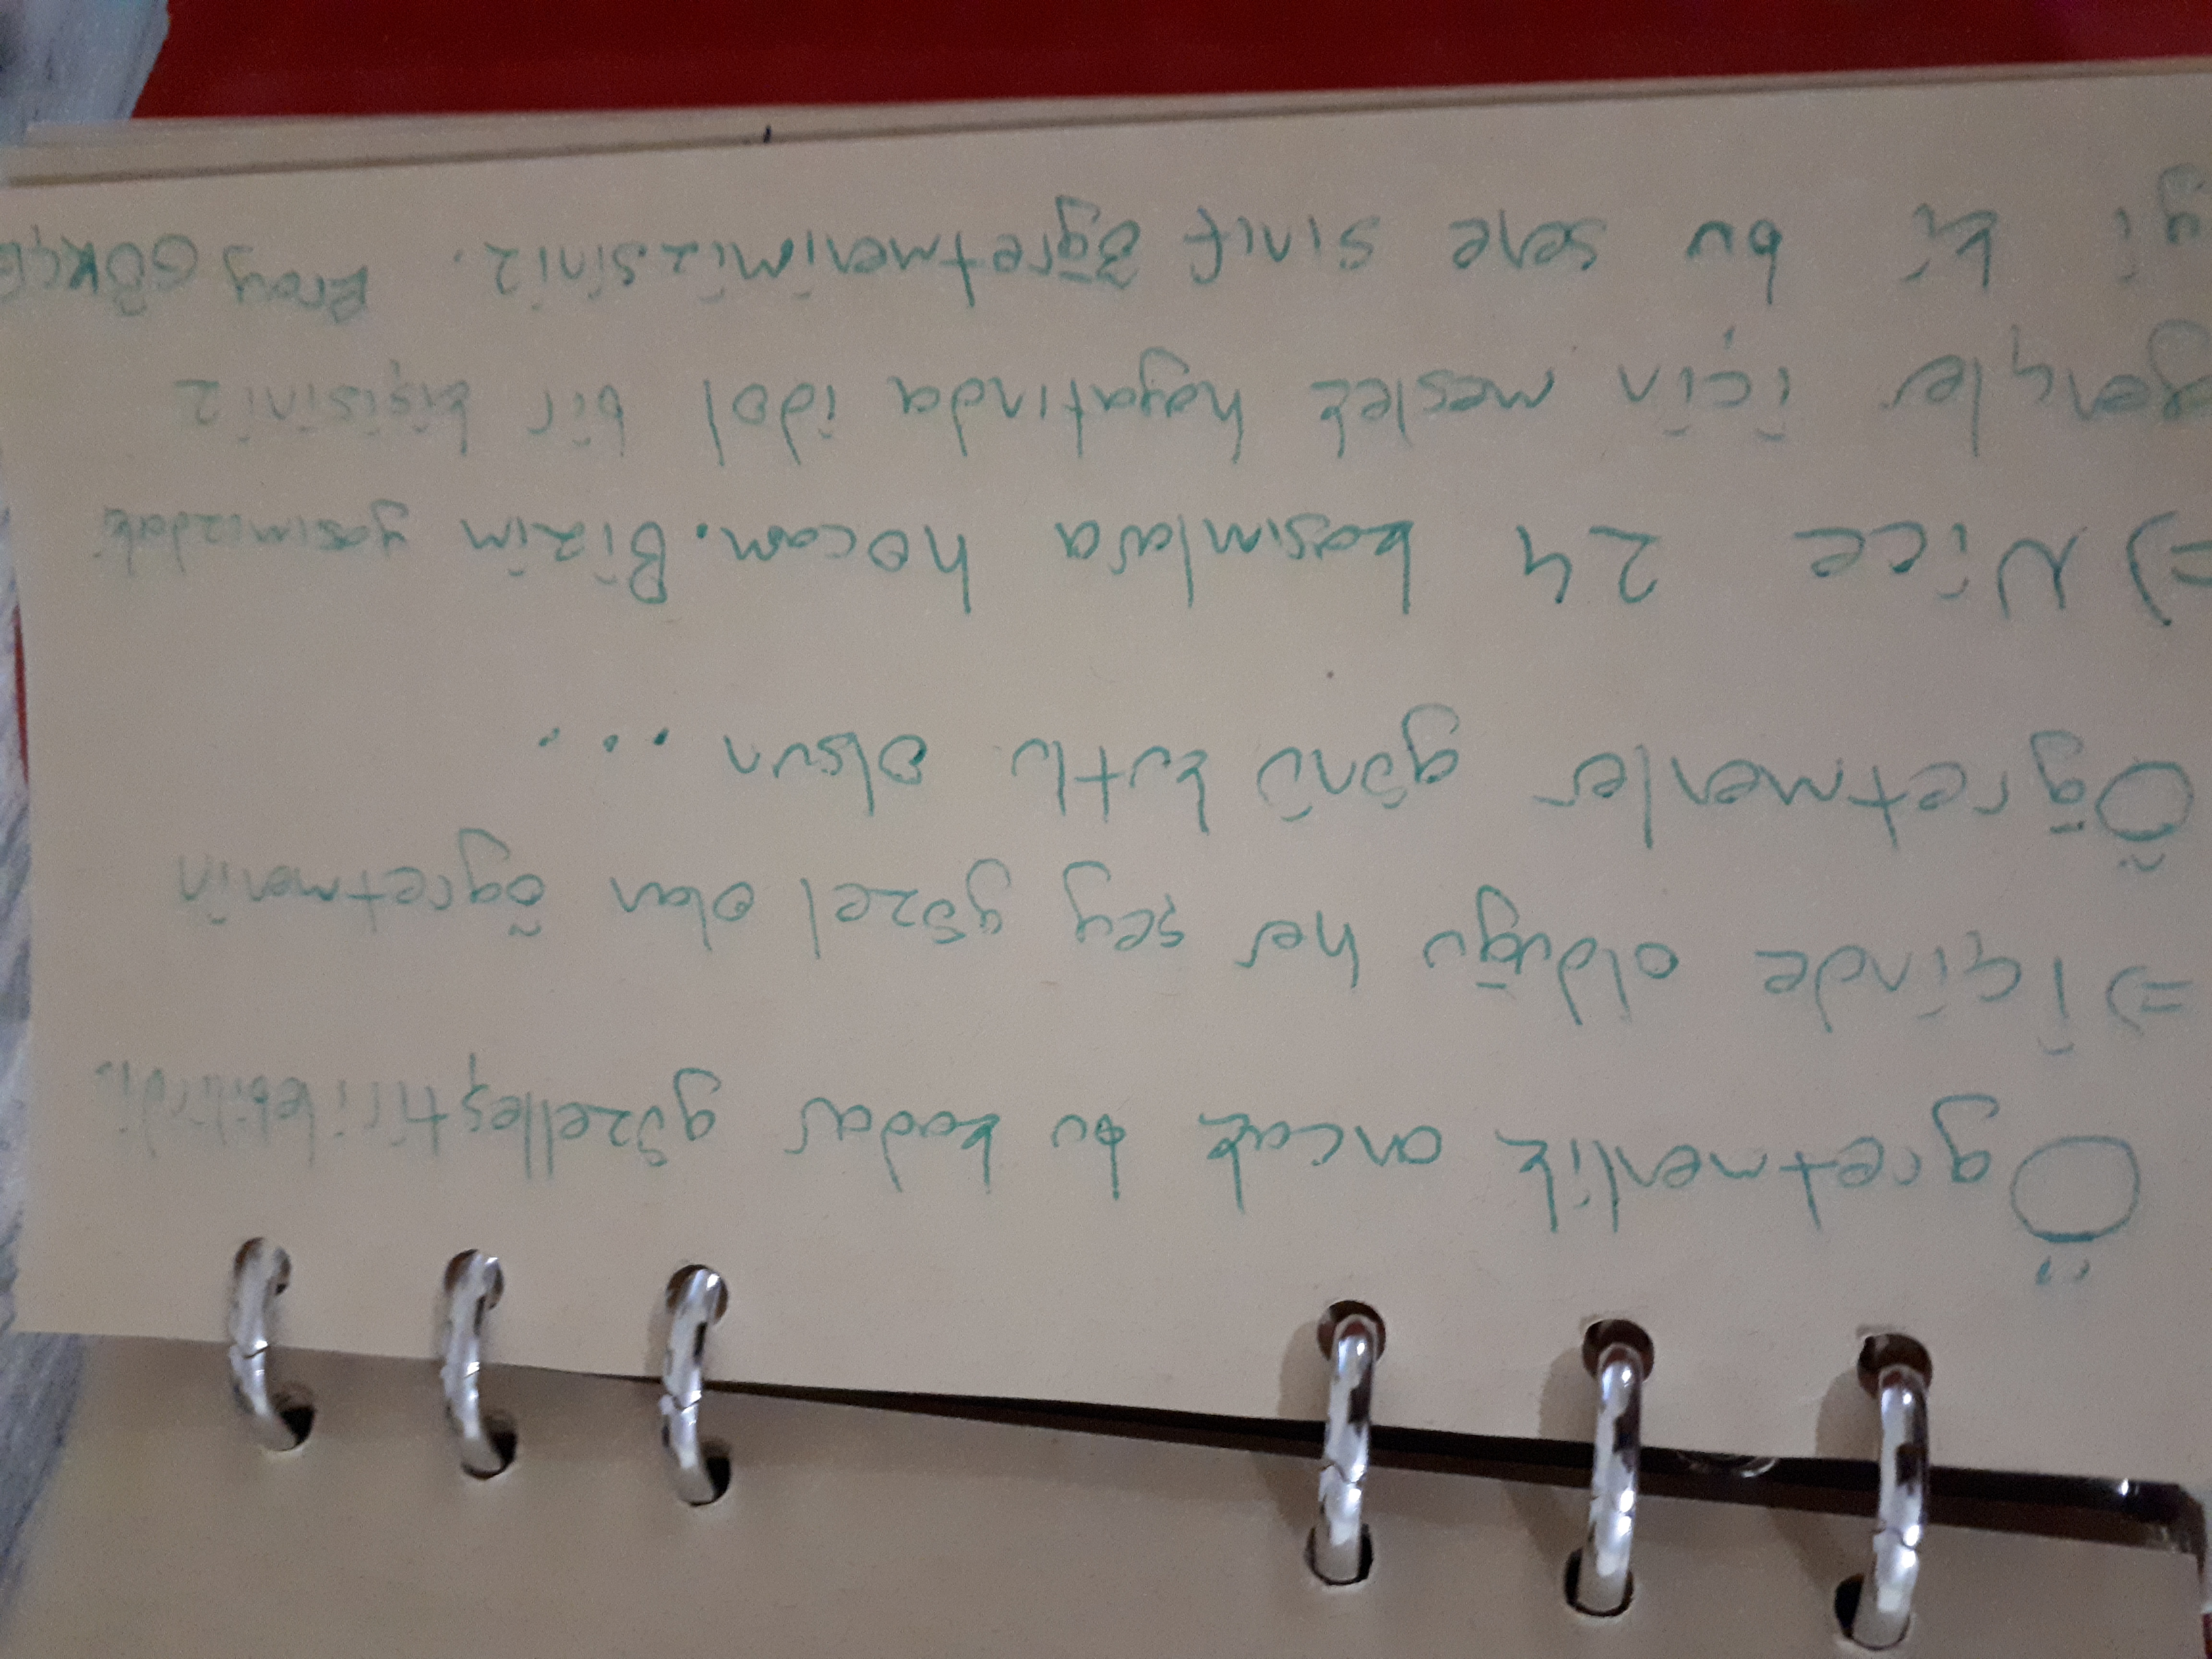 Öğretmenlik ancak bu kadar güzelleştirilebilirdi.
=) İçinde olduğu her şey güzel olan öğretmenin
Öğretmenler günü kutlu olsun ...
=) Nice 24 kasımlara hocam. Bizim yaşımızdaki
gençler için meslek hayatında idol bir kişisiniz
yi ki bu sene sınıf öğretmenimizsiniz. Eray GÖKÇE